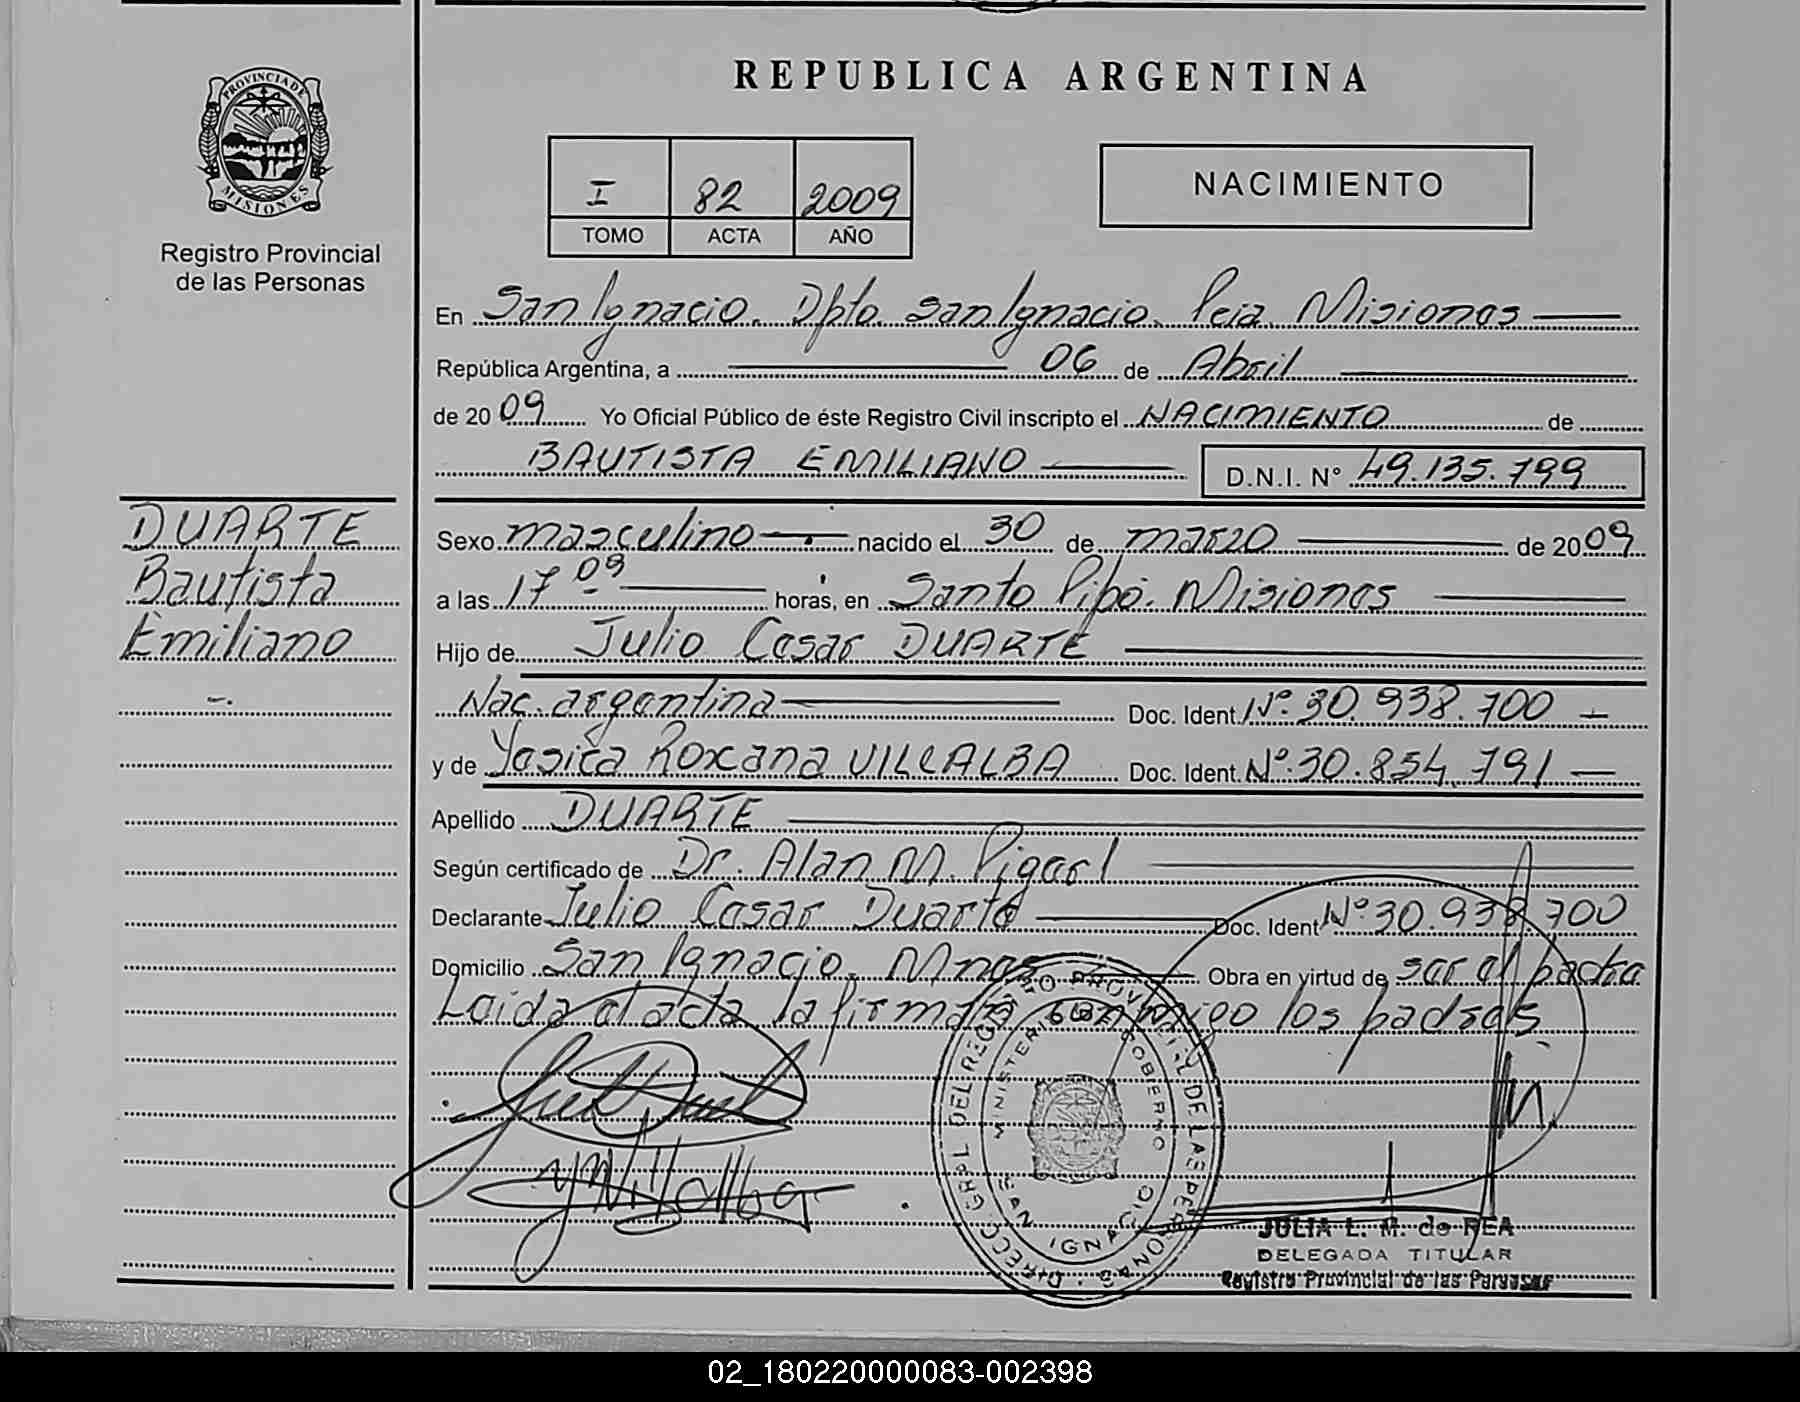 REPUBLICA ARGENTINA
PROVINCIA DE
MISIONES
Registro Provincial
de las Personas
I 82 2009
TOMO ACTA AÑO
NACIMIENTO
En San Ignacio. Dpto. San Ignacio. Pcia. Misiones
República Argentina, a 06 de Abril
de 2009 Yo Oficial Público de éste Registro Civil inscripto el NACIMIENTO de
BAUTISTA EMILIANO D.N.I. N° 49.135.799
DUARTE
Bautista
Emiliano
Sexo masculino nacido el 30 de marzo de 2009
a las 17 09 horas, en Santo Pipó. Misiones
Hijo de Julio Cesar DUARTE
Nac. argentina Doc. Ident. N°. 30.938.700
y de Yesica Roxana VILLALBA Doc. Ident. N°. 30.854.791
Apellido DUARTE
Según certificado de Dr. Alan M.
Declarante Julio Cesar Duarte Doc. Ident N° 30.938.700
Domicilio San Ignacio. Mnes Obra en virtud de ser el padre
Leída el acta la firman conmigo los padres.
DIRECC. GRAL. DEL REGISTRO PROVINCIAL DE LAS PERSONAS
MINISTERIO DE GOBIERNO
SAN IGNACIO
JULIA L. M. de REA
DELEGADA TITULAR
Registro Provincial de las Personas
02_180220000083-002398